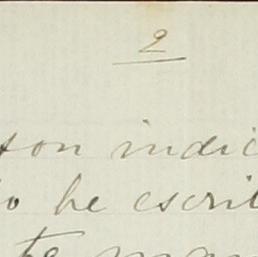 2
son indic
o he escrit
te man